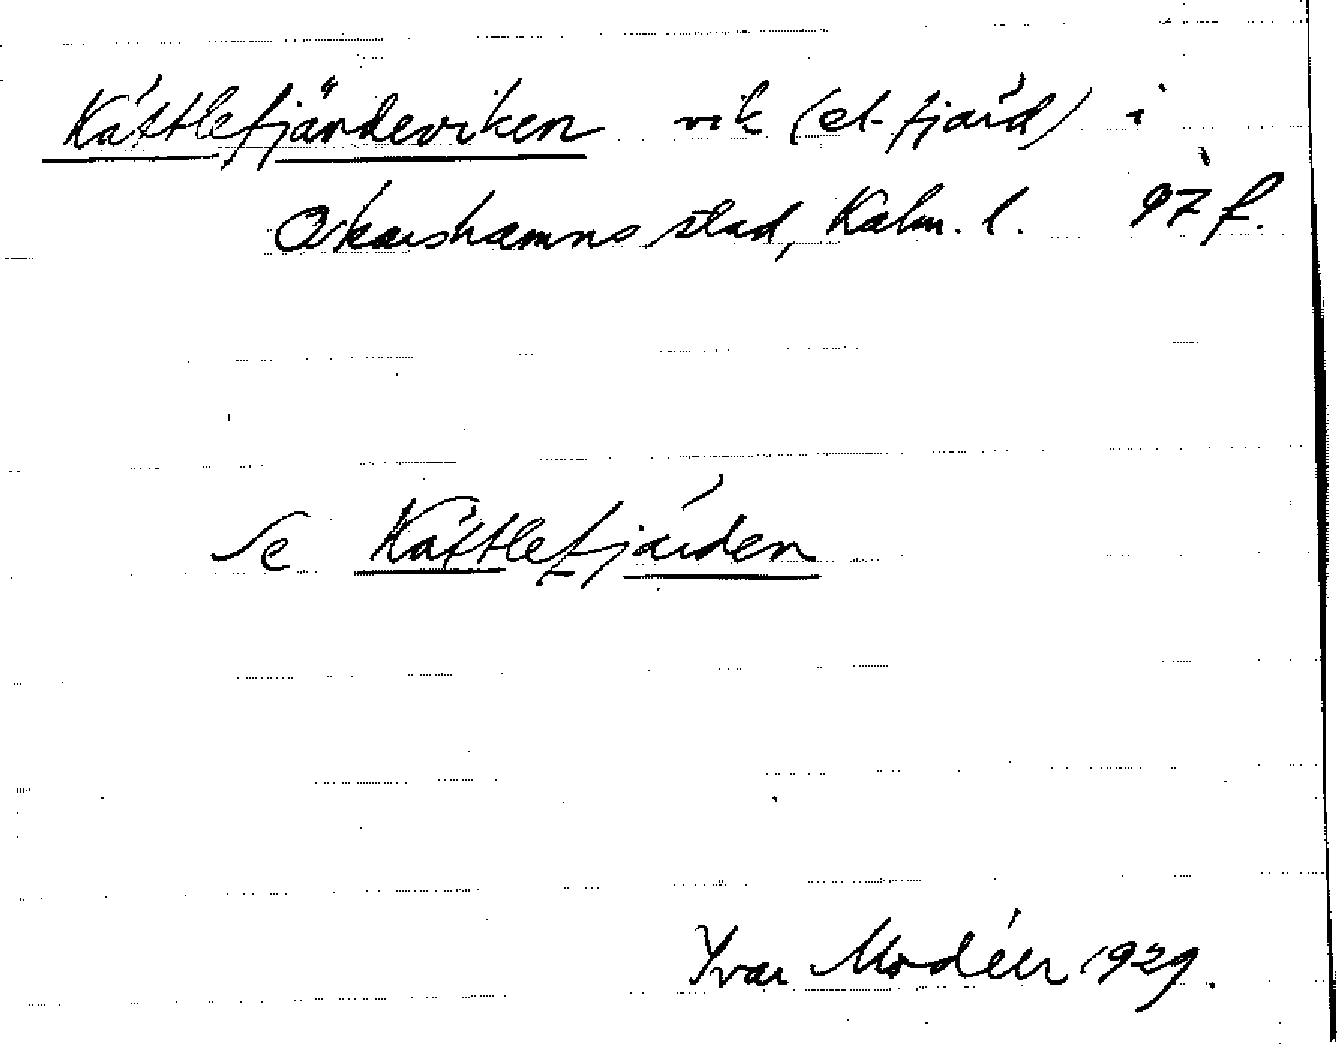 Kättlefjärdeviken vik (el. fjärd) i
Oskarshamns stad, Kalm. l. 97 f.
Se Kättlefjärden
Yvar Modéer 1929.